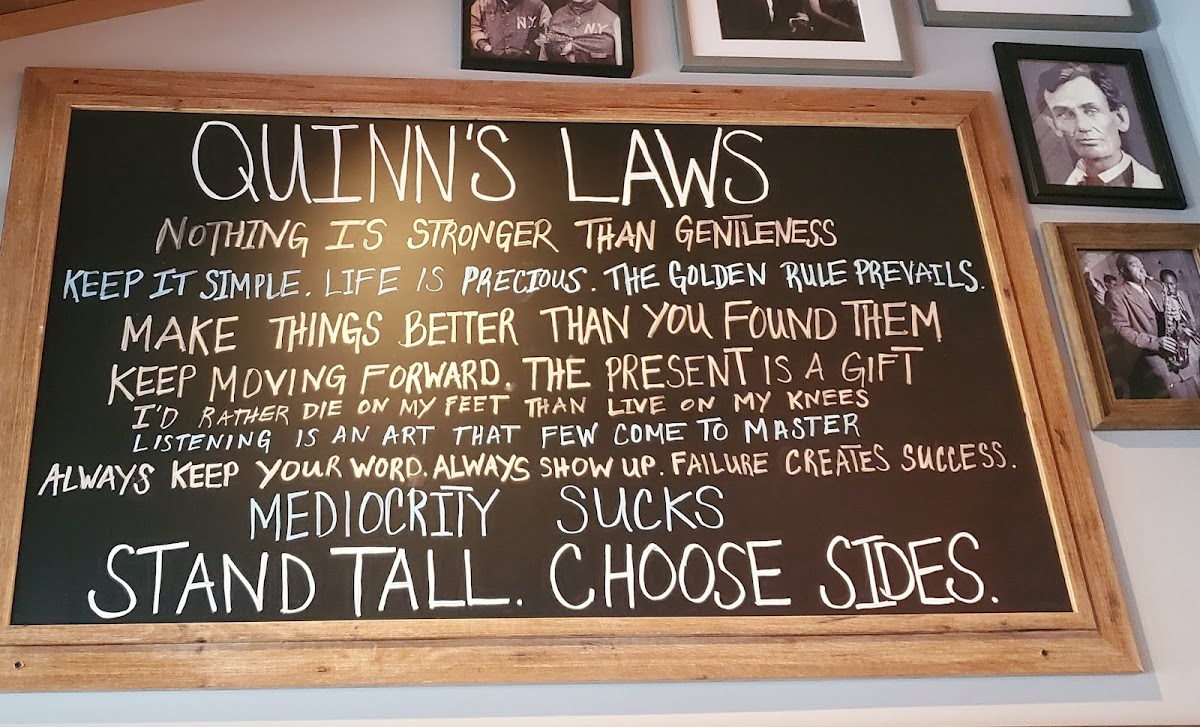 N.Y.
N.Y.
QUINN'S LAWS
NOTHING IS STRONGER THAN GENTLENESS
KEEP IT SIMPLE. LIFE IS PRECIOUS. THE GOLDEN RULE PREVAILS.
MAKE THINGS BETTER THAN YOU FOUND THEM
KEEP MOVING FORWARD. THE PRESENT IS A GIFT
I'D RATHER DIE ON MY FEET THAN LIVE ON MY KNEES
LISTENING IS AN ART THAT FEW COME TO MASTER
ALWAYS KEEP YOUR WORD. ALWAYS SHOW UP. FAILURE CREATES SUCCESS.
MEDIOCRITY SUCKS
STAND TALL. CHOOSE SIDES.